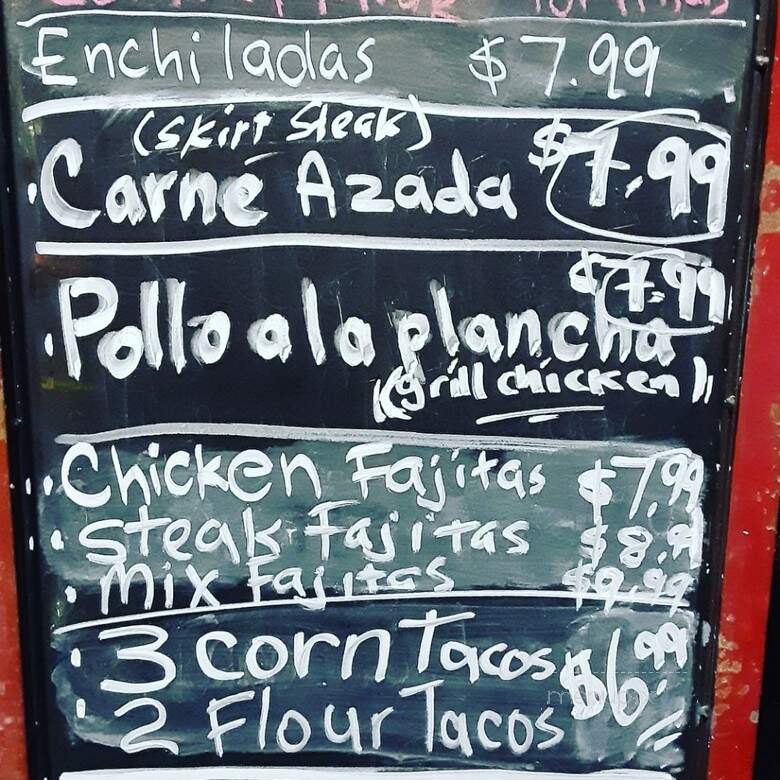 Enchiladas $7.99
(Skirt Steak)
Carne Azada $7.99
$7.99
Pollo a la plancha
(grill chicken)
Chicken Fajitas $7.99
Steak Fajitas $8.99
Mix Fajitas $9.99
3 corn Tacos $6.99
2 Flour Tacos